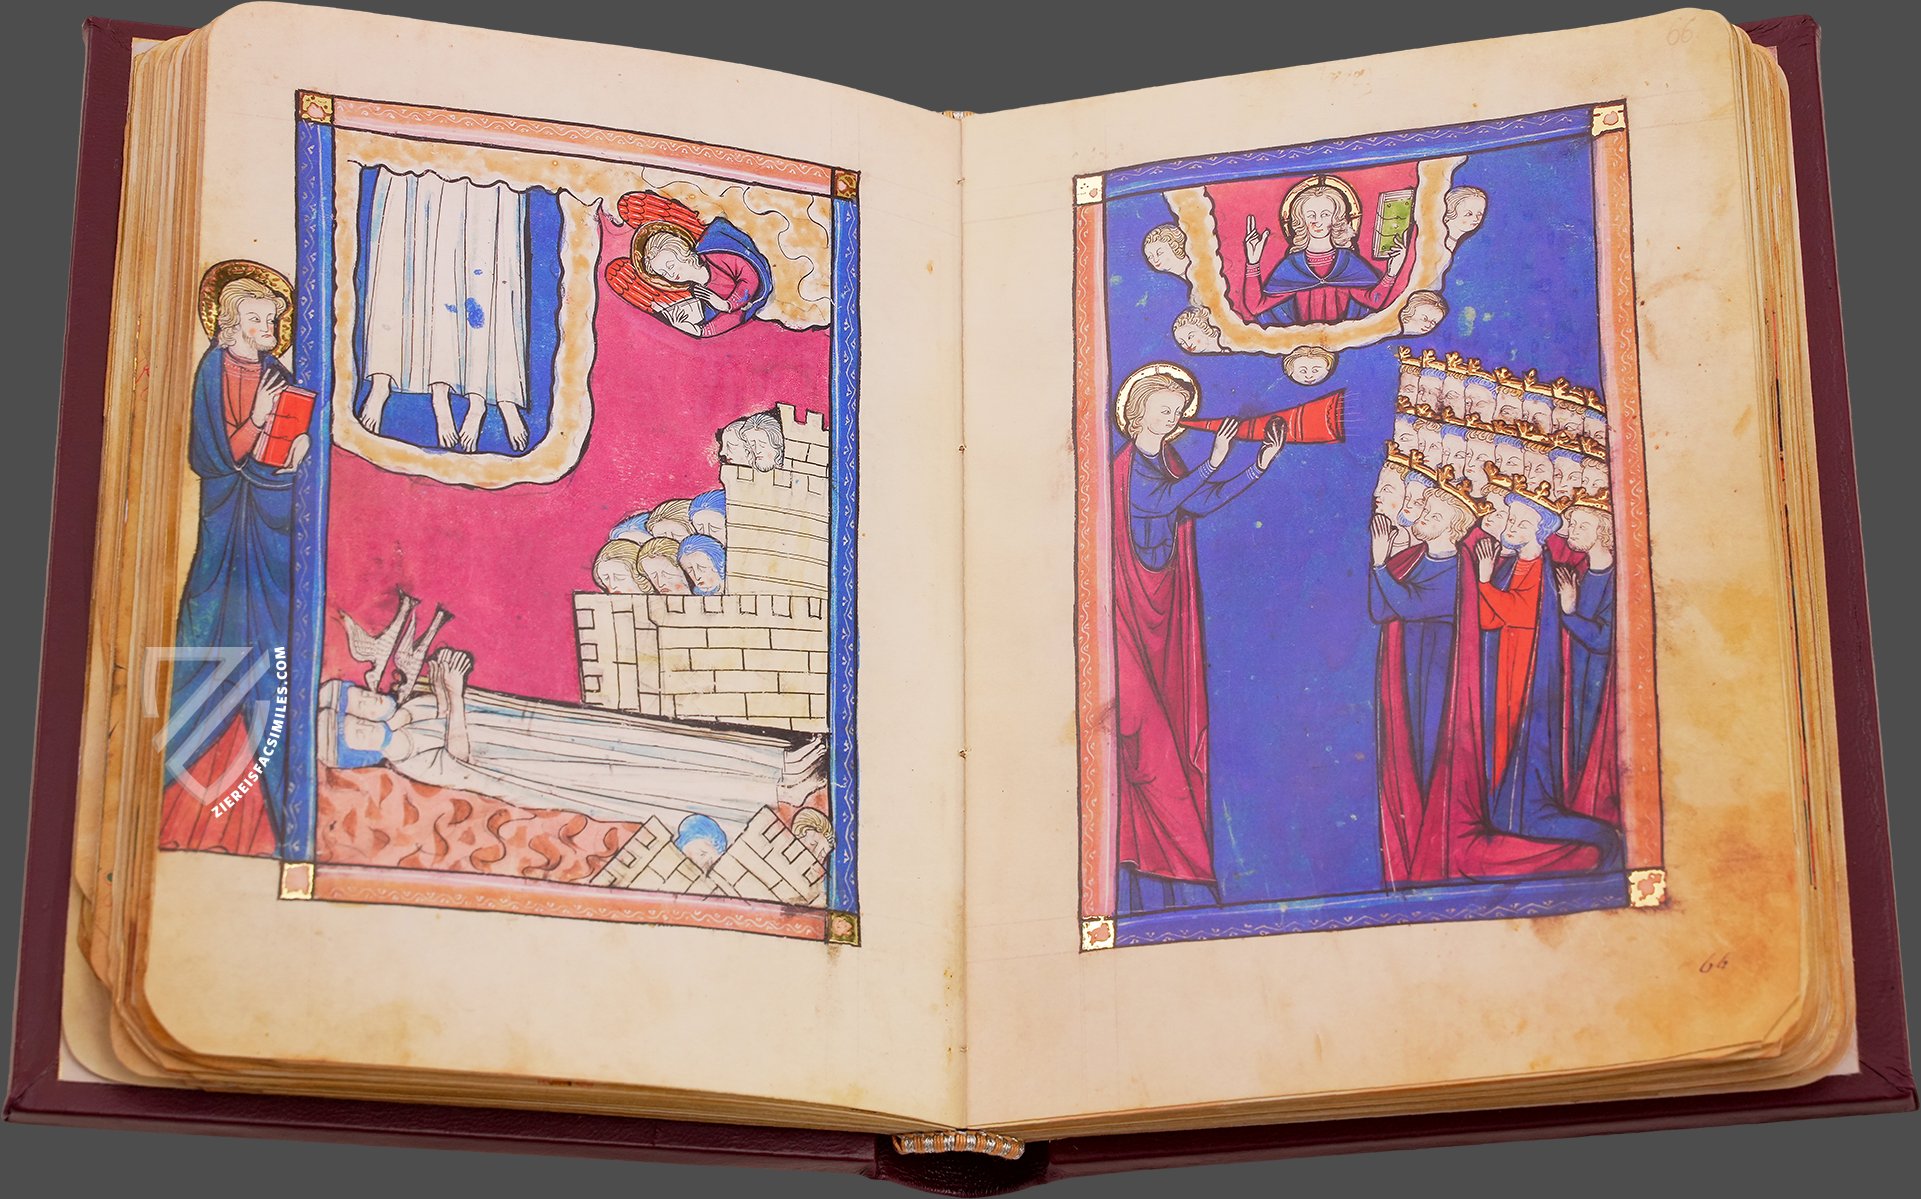 66
ZIEREISFACSIMILES.COM
64